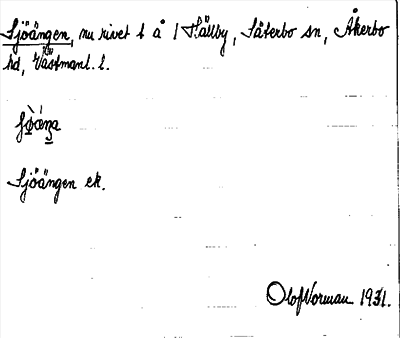 Sjöängen, nu rivet t å 1 Hällby, Säterbo sn, Åkerbo
hd, Västmanl. l.
Sjöängen ek.
Olof Norman 1931.